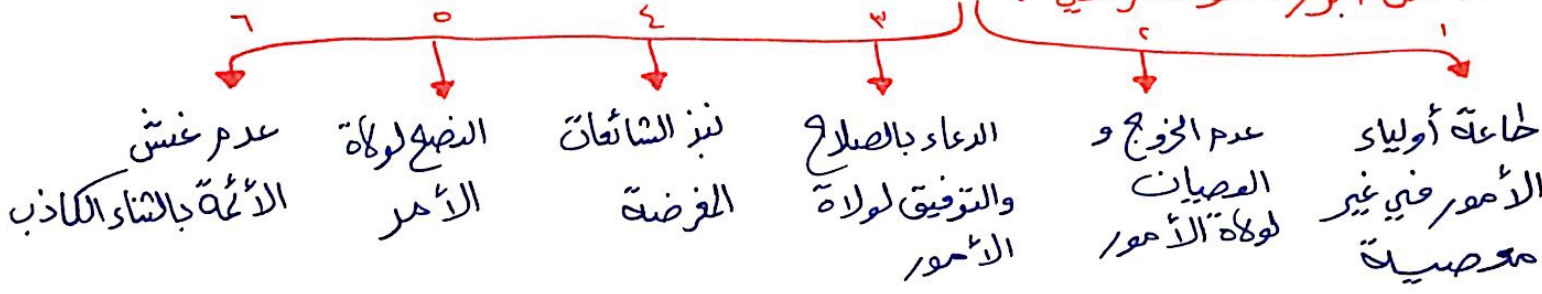 ١ ٢ ٣ ٤ ٥ ٦
طاعة أولياء
الأمور في غير
معصية
عدم الخروج و
العصيان
لولاة الأمور
الدعاء بالصلاح
والتوفيق لولاة
الأمور
نبذ الشائعات
المغرضة
النصح لولاة
الأمر
عدم غش
الأئمة بالثناء الكاذب